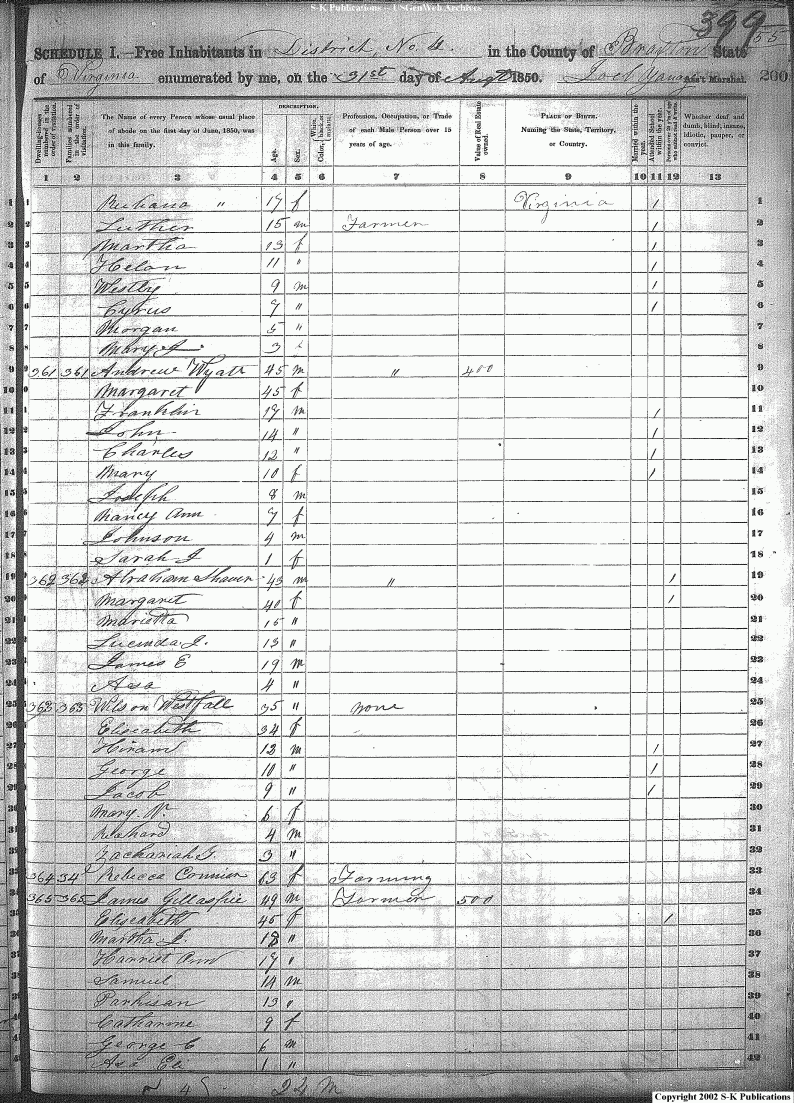 S-K Publications - USGenWeb Archives
399
55
SCHEDULE I.—Free Inhabitants in District No 4. in the County of Braxton State
of Virginia enumerated by me, on the 31st day of Augt 1850. Joel Ass't Marshal. 200
Dwelling-houses numbered in the order of visitation.
Families numbered in the order of visitation.
The Name of every Person whose usual place of abode on the first day of June, 1850, was in this family.
DESCRIPTION.
Age.
Sex.
Color,
Profession, Occupation, or Trade of each Male Person over 15 years of age.
Value of Real Estate owned.
PLACE OF BIRTH. Naming the State, Territory, or Country.
Married within the year.
Attended School within the year.
Whether deaf and dumb, blind, insane, idiotic, pauper, or convict.
1 2 3 4 5 6 7 8 9 10 11 12 13
1 " 17 f Virginia / 1
2 Luther 15 m Farmer / 2
3 Martha 13 f / 3
4 Helon 11 " / 4
5 Westly 9 m / 5
6 Cyrus 7 " / 6
7 Morgan 5 " 7
8 Mary J 3 8
9 361 361 Andrew Wyatt 45 m " 400 9
10 Margaret 45 f 10
11 Franklin 17 m / 11
12 John 14 " / 12
13 Charles 12 " / 13
14 Mary 10 f / 14
15 Joseph 8 m 15
16 Nancy Ann 7 f 16
17 Johnson 4 m 17
18 Sarah J 1 f 18
19 362 362 Abraham Shaver 43 m " / 19
20 Margaret 40 f / 20
21 Marietta 15 " 21
22 Lucinda J. 13 " 22
23 James E 19 m 23
24 Asa 4 " 24
25 363 363 Wilson Westfall 35 " none 25
26 Elisabeth 34 f 26
27 Hiram 12 m / 27
28 George 10 " / 28
29 Jacob 9 " / 29
30 Mary N. 6 f 30
31 Richard 4 m 31
32 Zachariah T. 3 " 32
33 364 34 Rebecca 63 f Farming 33
34 365 365 James Gillaspie 49 m Farmer 500 34
35 Elisabeth 45 f / 35
36 Martha J. 18 " 36
37 Harriet Ann 17 " 37
38 Samuel 14 m 38
39 Parkisan 13 " 39
40 Catharine 9 f 40
41 George C 6 m 41
42 Asa Eli 1 " 42
24 M
Copyright 2002 S-K Publications